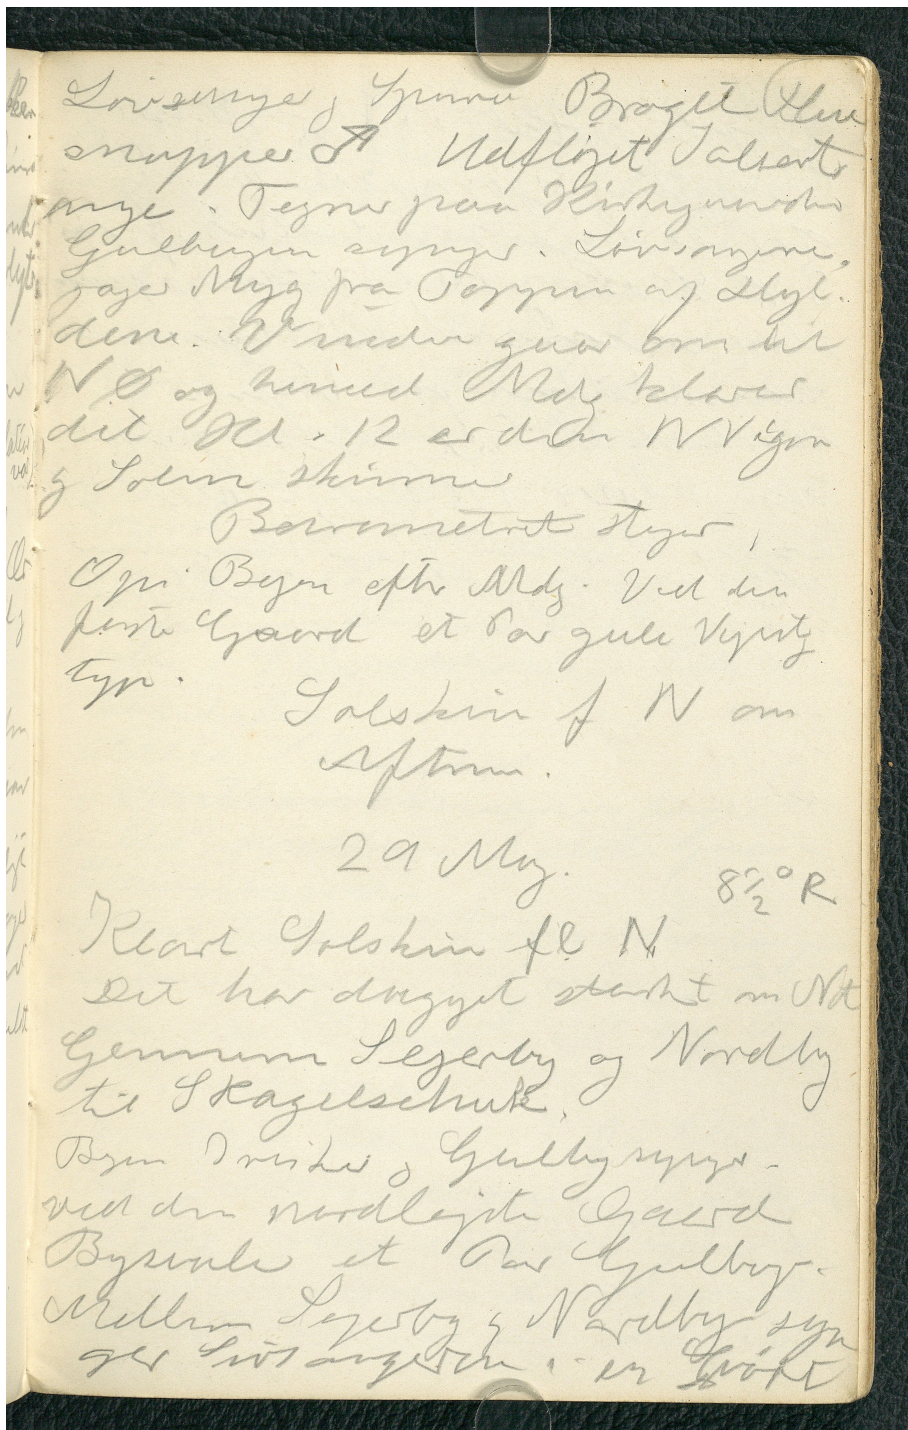 Løvsanger, Spurve Broget Flue
snapper ♂ Udfløjet Solsort
unge. paa Kirkegaarden
Gulbugen synger. Løvsangerne
jager Myg fra Toppen af Hyl-
dene. Vinden gaar om til
NØ og henad Mdg klarer
det Kl. 12 er den NV igen
og Solen skinner
Barometret stiger,
Op i Byen efter Mdg. Ved den
første Gaard et Par gule Vipstj
Solskin f N om
Aftenen.
29 Maj.
8 1/2° R
Klart Solskin fl N
Det har dugget stærkt om Nat
Gennem Sejerby og Nordby
til Skagelschuk.
Byen Irisker og Gulbug synger.
ved den nordligste Gaard
Bysvale et Par Gulbug.
Mellem Sejerby og Nordby syn
ger Sivsangeren. en